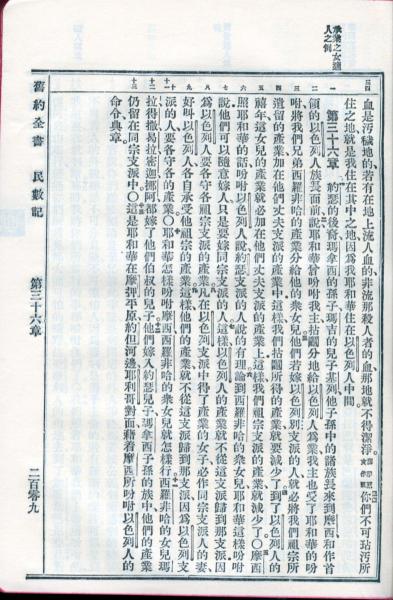 承業之女適
人之例
三四
血是污穢地的若有在地上流人血的非流那殺人者的血那地就不得潔淨。你們不可玷污所
住之地就是我住在其中之地因爲我耶和華住在以色列人中間。
第三十六章 約瑟的後裔瑪拿西的孫子瑪吉的兒子基列他子孫中的諸族長來到摩西和作首
領的以色列人族長面前說耶和華曾吩咐我主拈鬮分地給以色列人爲業我主也受了耶和華的吩
咐將我們兄弟西羅非哈的產業分給他的衆女兒他們若嫁以色列別支派的人就必將我們祖宗所
遺留的產業加在他們丈夫支派的產業中這樣我們拈鬮所得的產業就要減少了到了以色列人的
禧年這女兒的產業就必加在他們丈夫支派的產業上這樣我們祖宗支派的產業就減少了○摩西
照耶和華的話吩咐以色列人說約瑟支派的人說的有理論到西羅非哈的衆女兒耶和華這樣吩咐
說他們可以隨意嫁人只是要嫁同宗支派的人這樣以色列人的產業就不從這支派歸到那支派因
爲以色列人要各守各祖宗支派的產業凡在以色列支派中得了產業的女子必作同宗支派人的妻
好叫以色列人各自承受他祖宗的產業這樣他們的產業就不從這支派歸到那支派因爲以色列支
派的人要各守各的產業○耶和華怎樣吩咐摩西西羅非哈的衆女兒就怎樣行西羅非哈的女兒瑪
拉得撒曷拉密迦挪阿都嫁了他們伯叔的兒子他們嫁入約瑟兒子瑪拿西子孫的族中他們的產業
仍留在同宗支派中○這是耶和華在摩押平原約但河邊耶利哥對面藉着摩西所吩咐以色列人的
命令典章。
舊約全書 民數記 第三十六章 二百零九